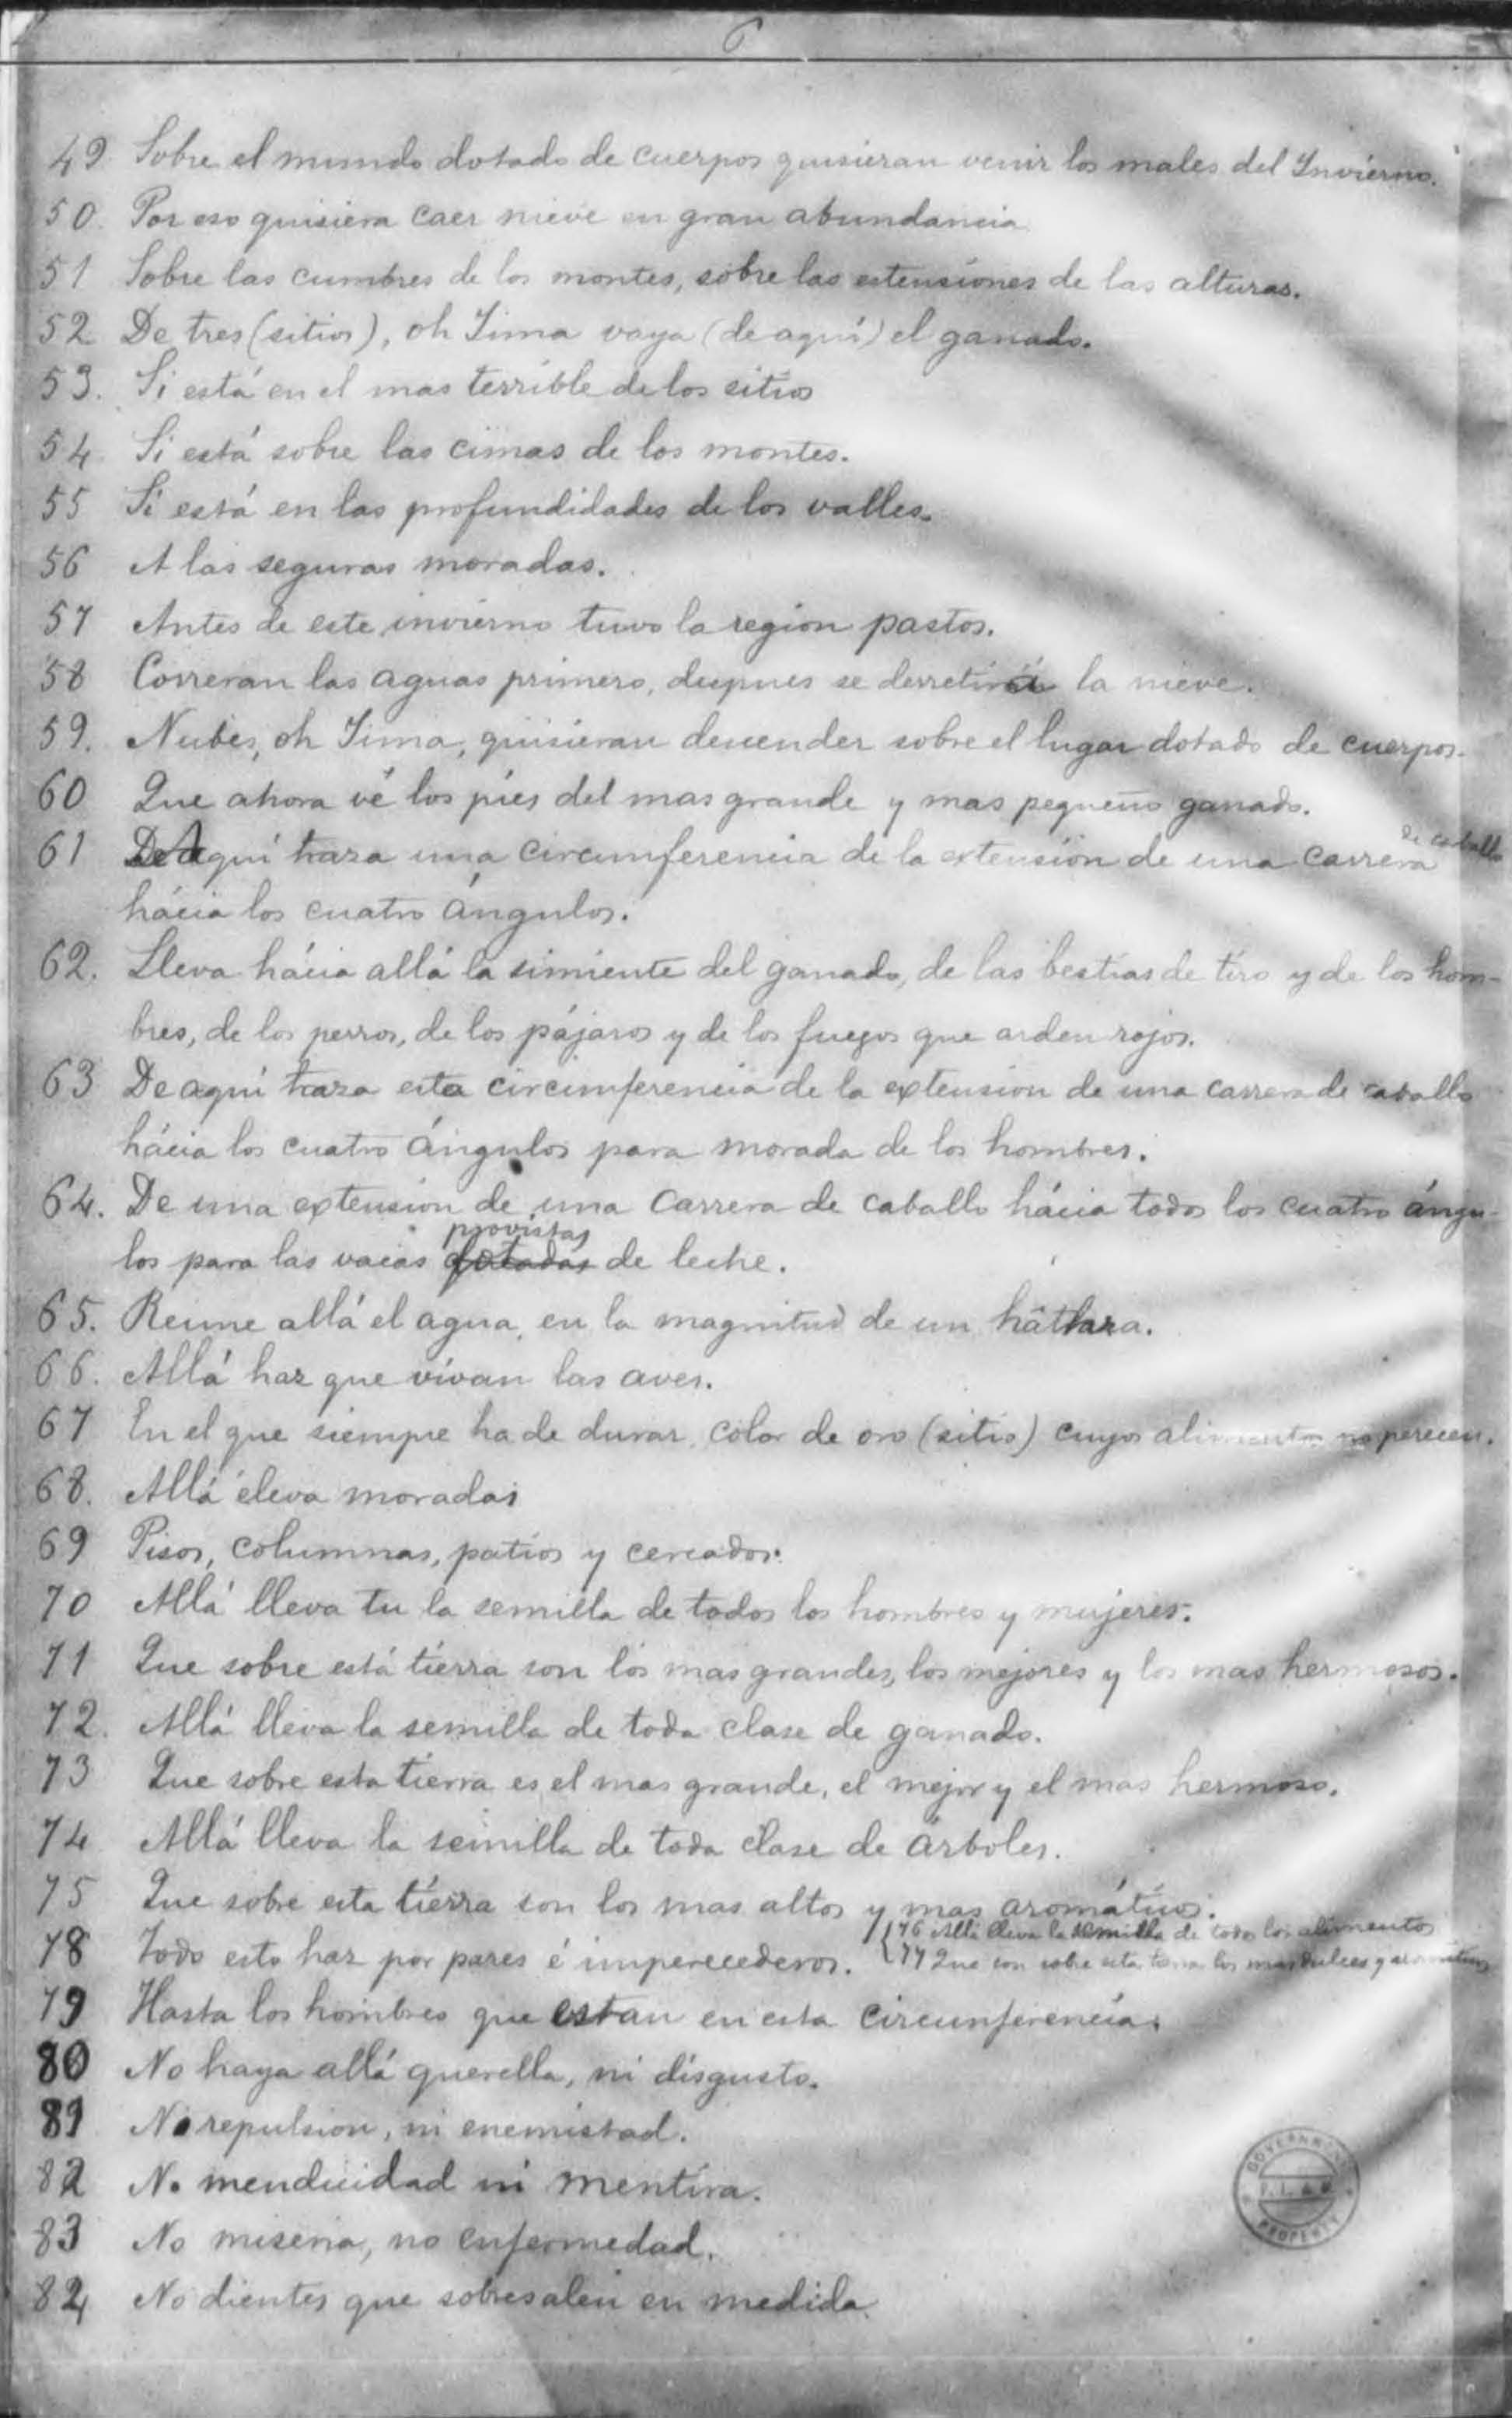 6
49 Sobre el mundo dotado de cuerpos quisieran venir los males del Invierno.
50. Por eso quisiera caer nieve en gran abundancia
51 Sobre las cumbres de los montes, sobre las estensiones de las alturas.
52 De tres (sitios), oh Jima vaya (de aquí) el ganado.
53. Si está en el mas terrible de los sitios
54 Si está sobre las cimas de los montes.
55 Si está en las profundidades de los valles.
56 A las seguras moradas.
57 Antes de este invierno tuvo la region pastos.
58 Correran las aguas primero, despues se derretirá la nieve.
59. Nubes, oh Jima, quisieran descender sobre el lugar dotado de cuerpos.
60 Que ahora vé los piés del mas grande y mas pequeño ganado.
61 Aquí traza una circumferencia de la extensión de una carrera de caballo
hácia los cuatro ángulos.
62. Lleva hácia allá la simiente del ganado, de las bestias de tiro y de los hom-
bres, de los perros, de los pájaros y de los fuegos que arden rojos.
63 De aquí traza esta circumferencia de la extension de una carrera de caballo
hácia los cuatro ángulos para morada de los hombres.
64. De una extension de una carrera de caballo hácia todos los cuatro ángu-
los para las vacas dotadas provistas de leche.
65. Reune allá el agua en la magnitud de un hâthra.
66. Allá haz que vivan las aves.
67 En el que siempre ha de durar, color de oro (sitio) cuyos alimentos no perecen.
68. Allá eleva moradas
69 Pisos, columnas, patios y cercados.
70 Allá lleva tu la semilla de todos los hombres y mujeres.
71 Que sobre está tierra son los mas grandes, los mejores y los mas hermosos.
72. Allá lleva la semilla de toda clase de ganado.
73 Que sobre esta tierra es el mas grande, el mejor y el mas hermoso.
74 Allá lleva la semilla de toda clase de árboles.
75 Que sobre esta tierra son los mas altos y mas aromáticos.
76 Allá lleva la semilla de todos los alimentos
77 Que son sobre esta tierra los mas dulces y aromáticos
78 Todo esto haz por pares é imperecederos.
79 Hasta los hombres que estan en esta circunferencia.
80 No haya allá querella, ni disgusto.
81 No repulsion, ni enemistad.
82 No mendicidad ni mentira.
83 No miseria, no enfermedad.
84 No dientes que sobresalen en medida
GOVERNMENT
P.I.
PROPERTY